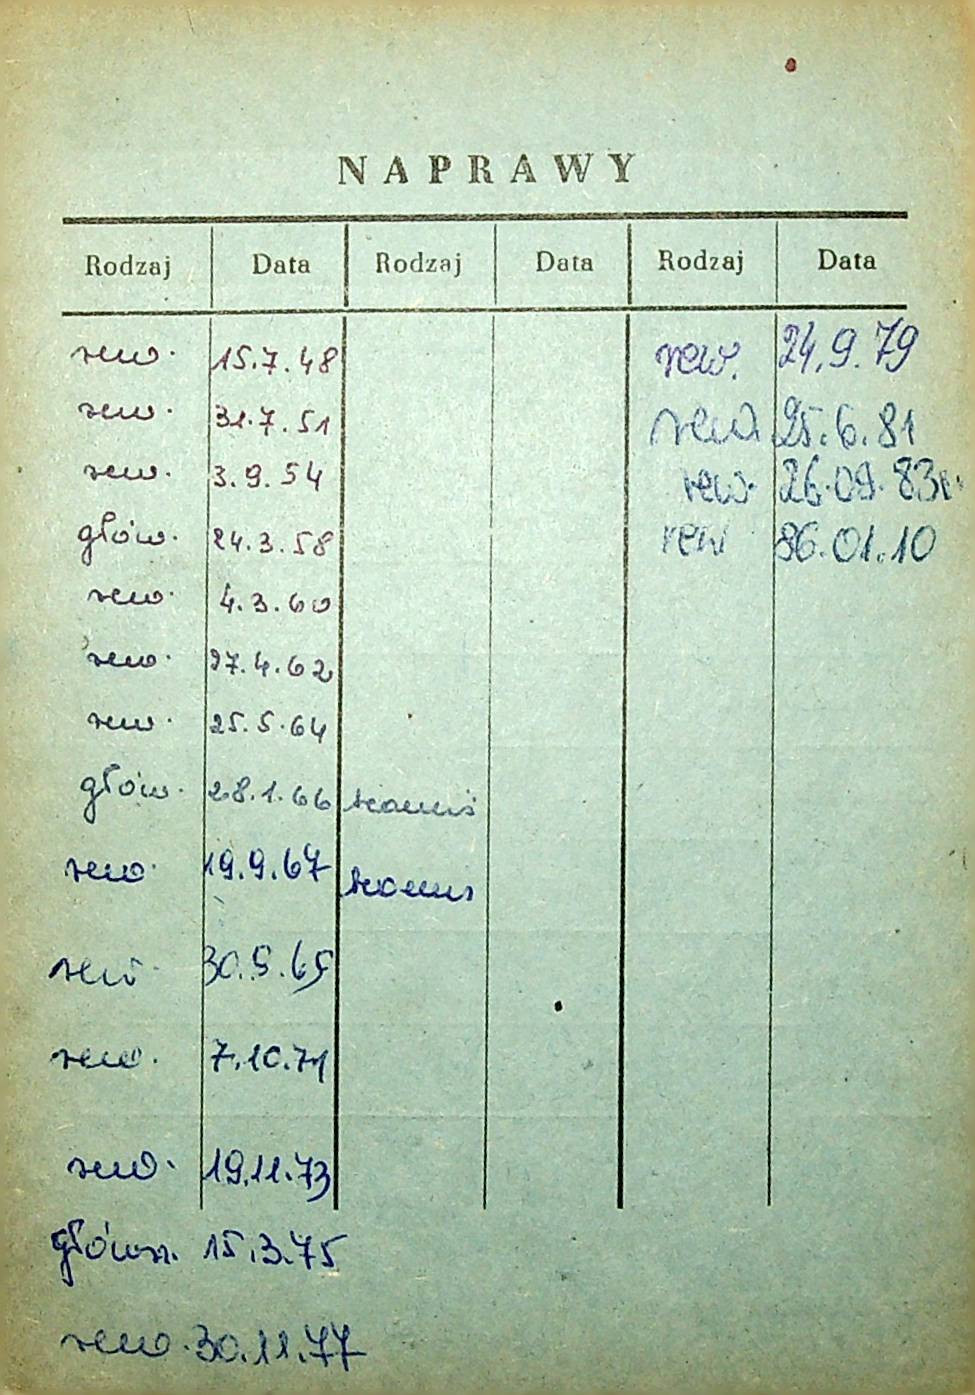 NAPRAWY
Rodzaj Data Rodzaj Data Rodzaj Data
rew. 15.7.48 rew. 24.9.79
rew. 31.7.51 rew. 25.6.81
rew. 3.9.54 rew. 26.09.83r.
głów. 24.3.58 rew 86.01.10
rew. 4.3.60
rew. 27.4.62
rew. 25.5.64
głów. 28.1.66
rew. 19.9.67
rew. 30.9.69
rew. 7.10.71
rew. 19.11.73
główn. 15.3.75
rew. 30.11.77